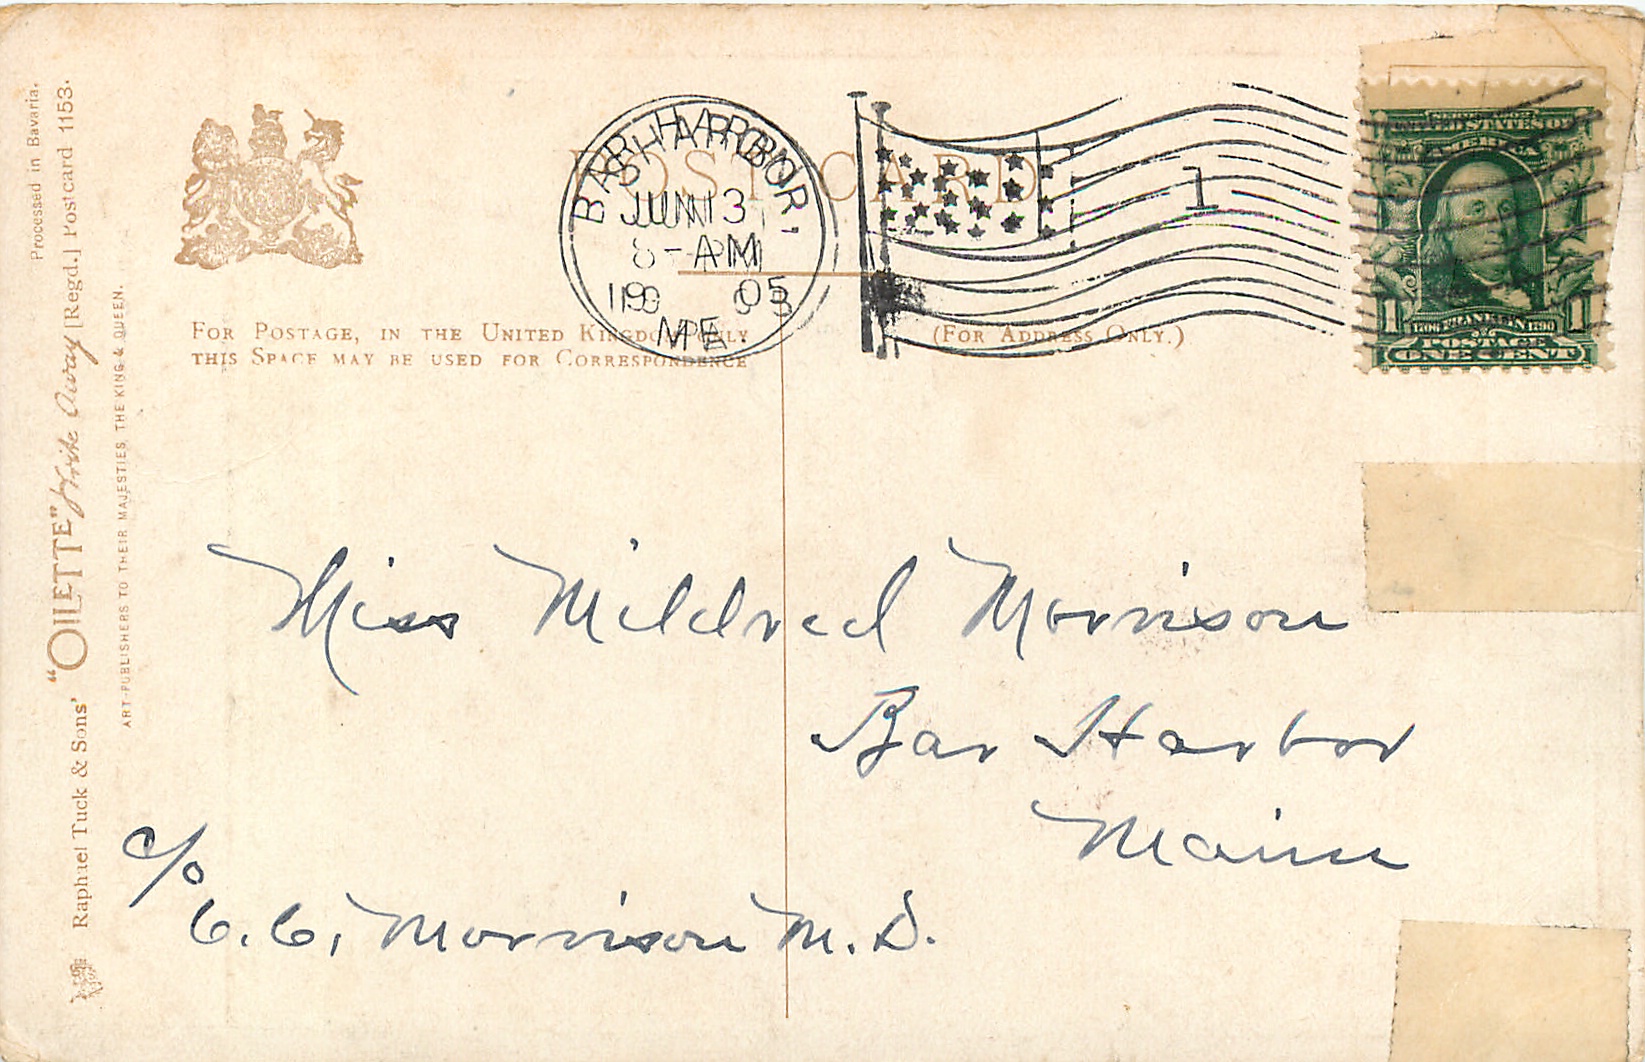 Processed in Bavaria.
Raphael Tuck & Sons' "OILETTE" Write Away [Regd.] Postcard 1153.
ART PUBLISHERS TO THEIR MAJESTIES THE KING & QUEEN.
POST CARD
BAR HARBOR,
JUN 13
8-AM
1905
ME
1
UNITED STATES OF
AMERICA
1706 FRANKLIN 1790
1 1
POSTAGE
ONE CENT
FOR POSTAGE, IN THE UNITED KINGDOM ONLY
THIS SPACE MAY BE USED FOR CORRESPONDENCE
(FOR ADDRESS ONLY.)
Miss Mildred Morrison
Bar Harbor
Maine
c/o
C. C. Morrison M. D.